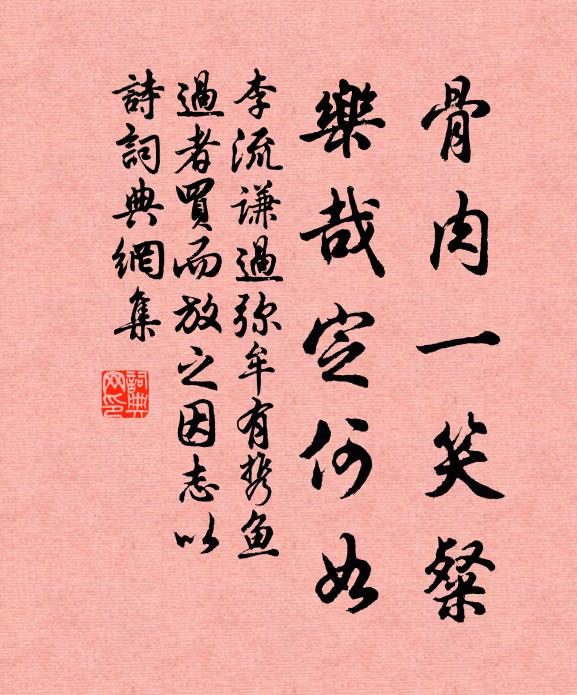 骨肉一笑粲
樂哉定何如
李流谦過弥牟有携鱼
過者買而放之因志以
詩詞典網集
詞典网印